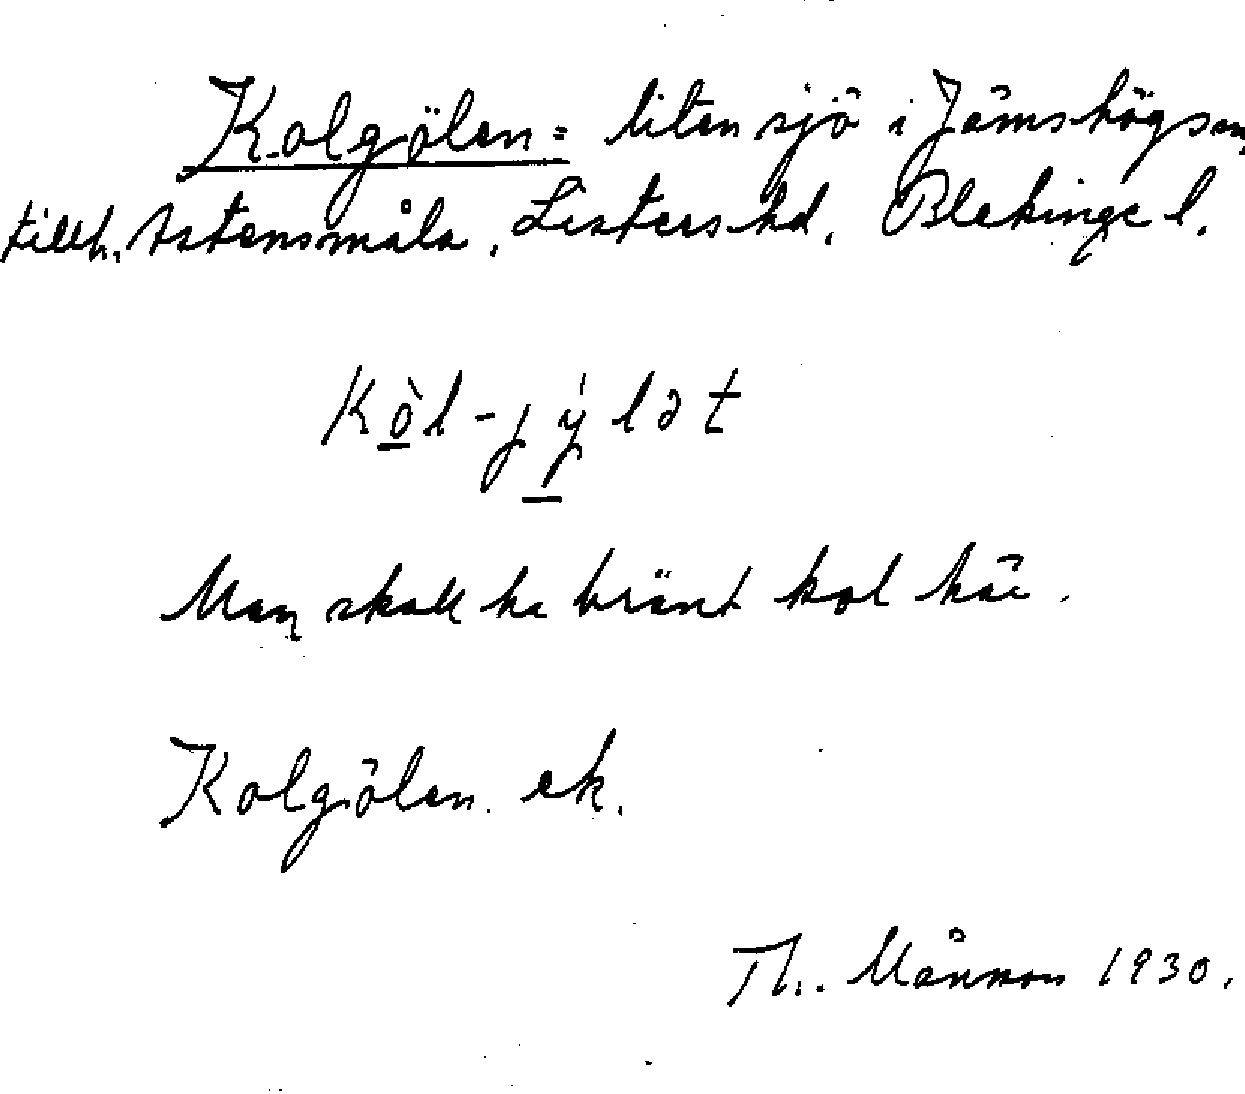 Kolgölen = liten sjö i Jämshögs sn,
tillh. Östensmåla. Listers hd. Blekinge l.
Kòl-jýlət
Man skall ha bränt kol här.
Kolgölen. ek.
Th. Månson 1930.